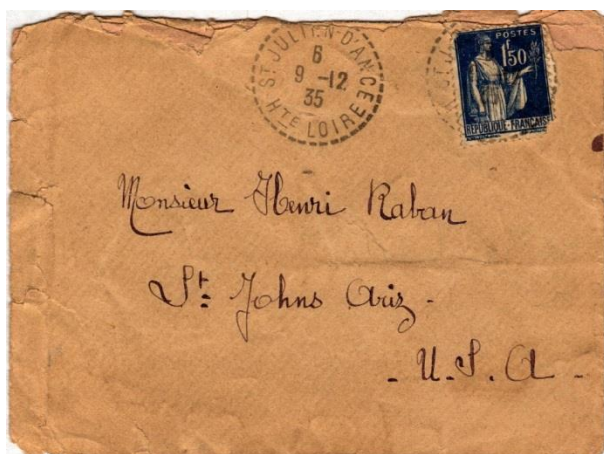 ST JULIEN-D'ANCE
6
9 -12
35
HTE LOIRE
POSTES
1F50
REPUBLIQUE-FRANÇAISE
Monsieur Henri Raban
St. Johns Ariz-
- U. S. A -